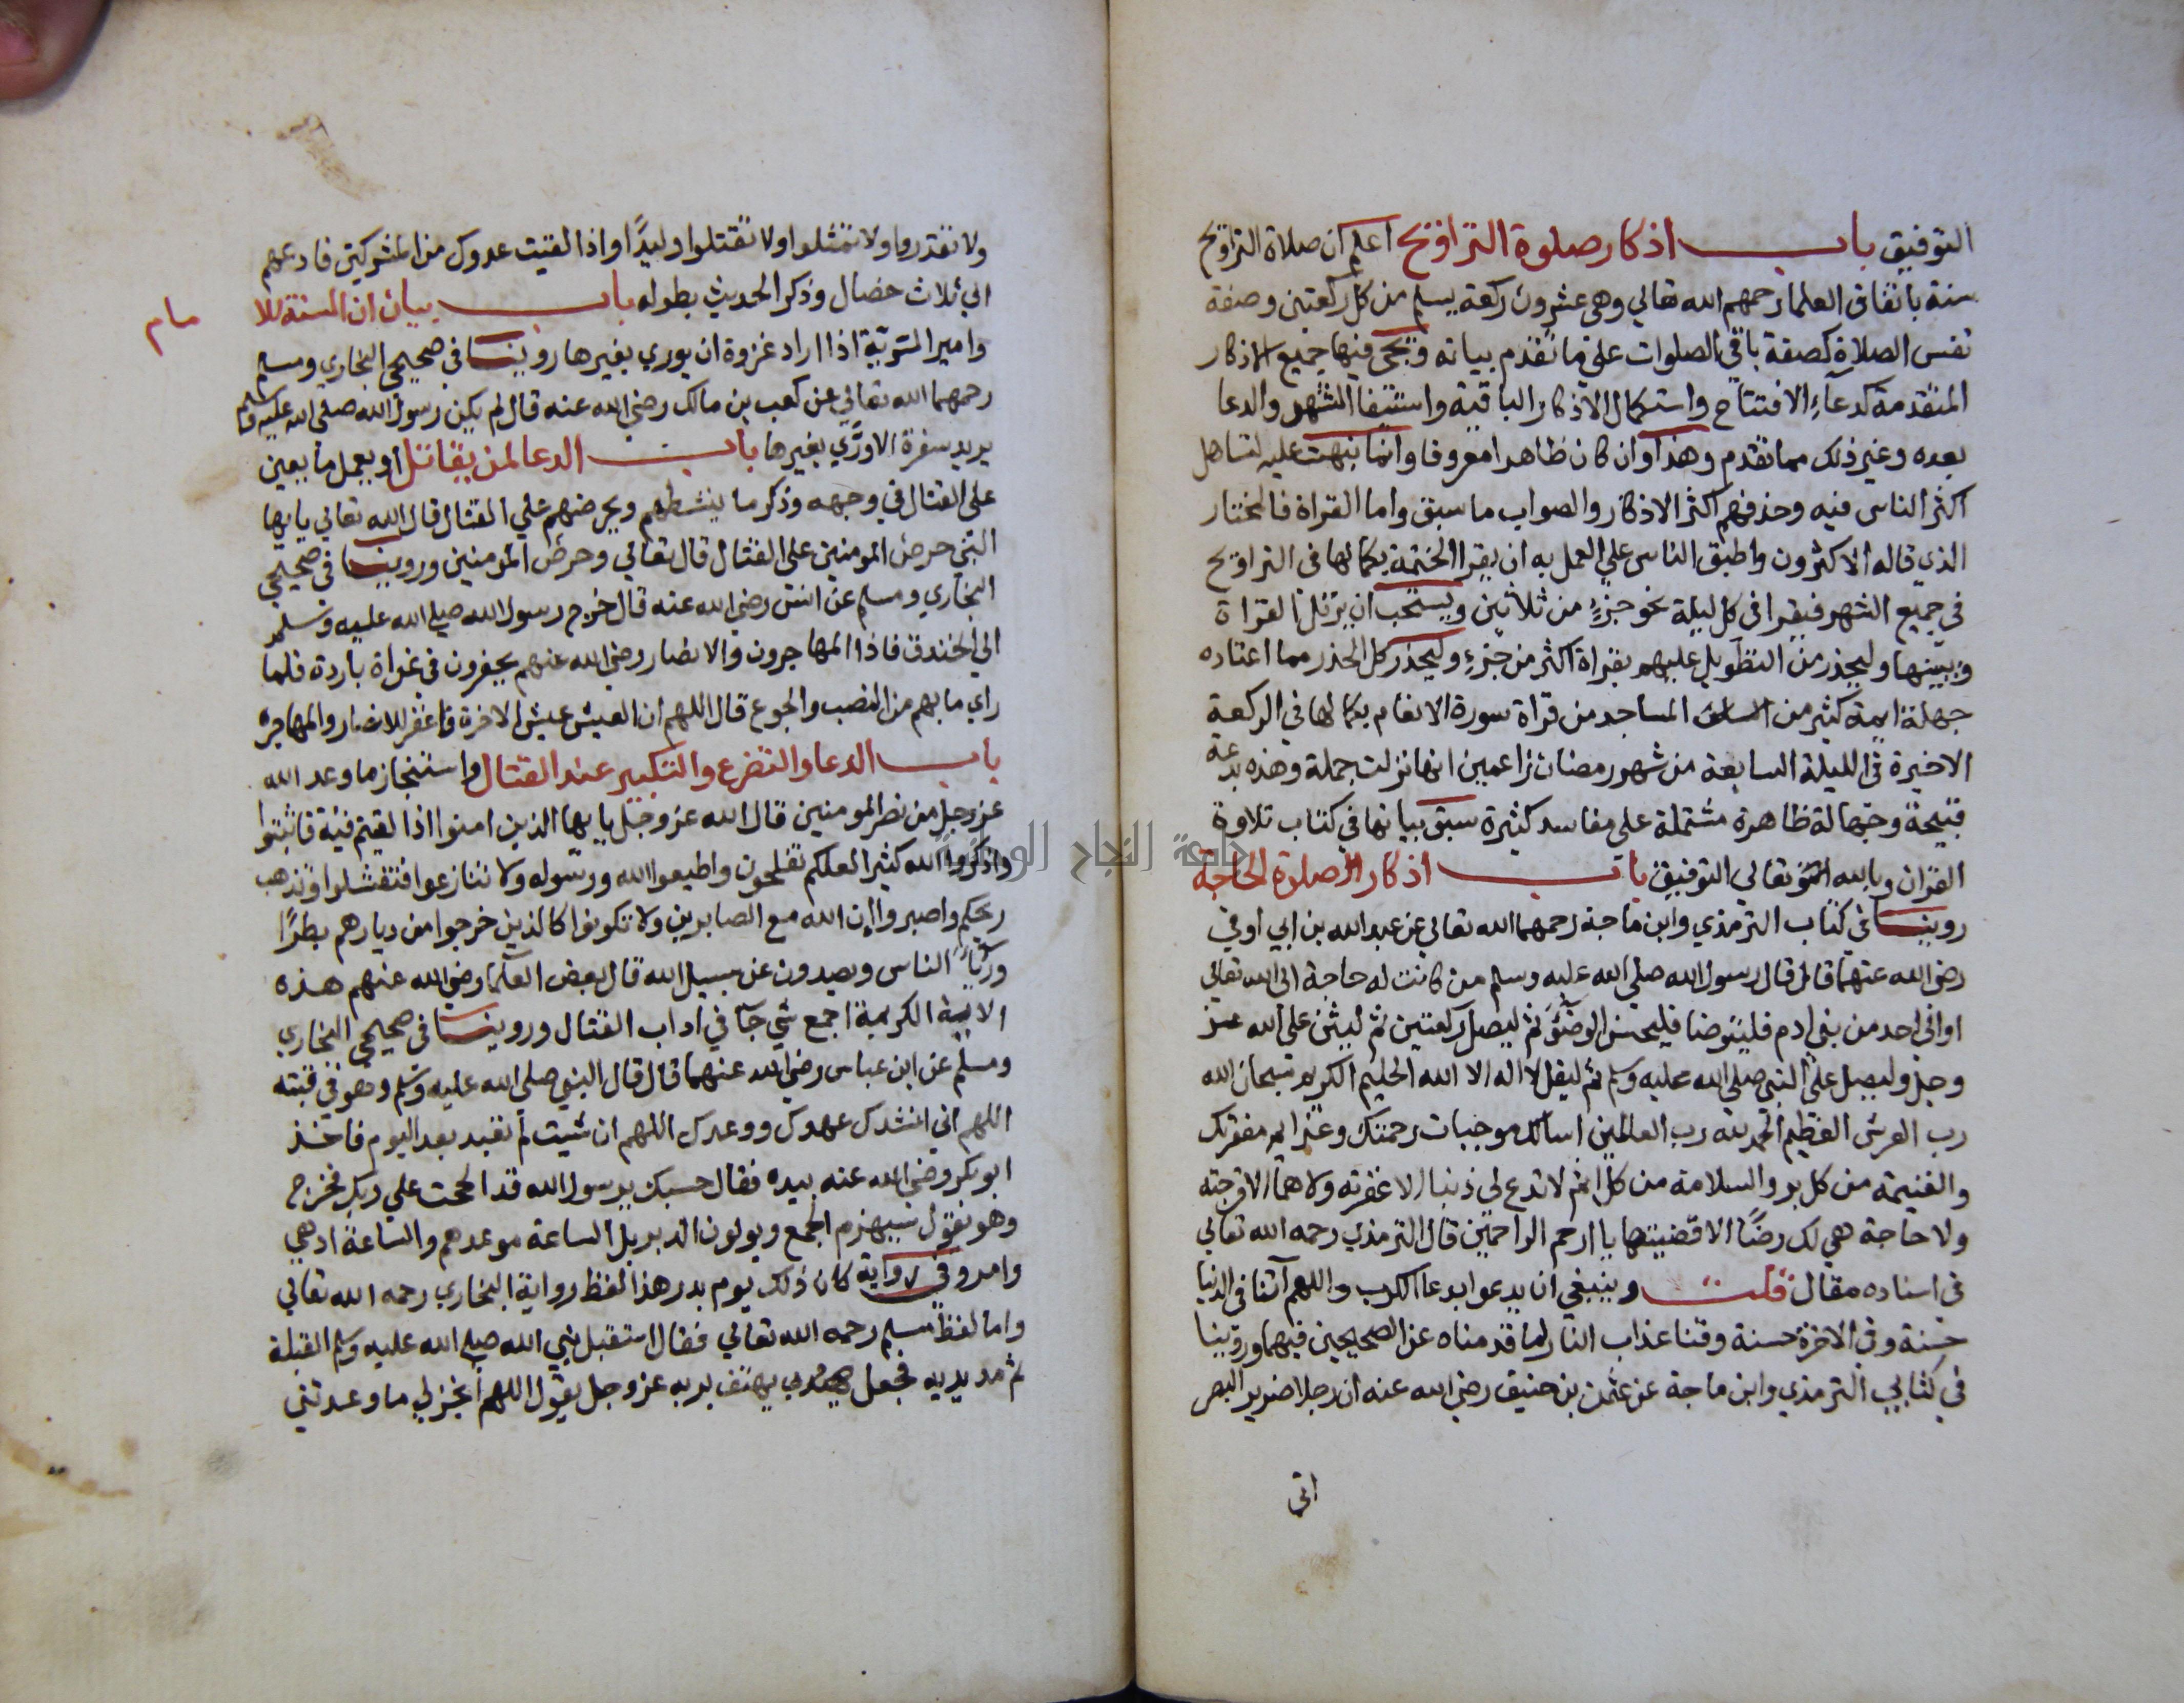 التوفيق باب اذكار صلوة التراويح اعلم ان صلاة التراويح
سنة باتفاق العلما رحمهم الله تعالي وهي عشرون ركعة يسلم من كل ركعتين وصفة
نفس الصلاة كصفة باقي الصلوات علي ما تقدم بيانه ويجئ فيها جميع الاذكار
المتقدمة كدعآء الافتتاح واستكمال الاذكار الباقية واستيفا التشهد والدعا
بعده وغير ذلك مما تقدم وهذا وان كان ظاهرا معروفا وانما نبهت عليه لتساهل
اكثر الناس فيه وحذفهم اكثر الاذكار والصواب ما سبق واما القراة فالمختار
الذي قاله الاكثرون واطبق الناس علي العمل به ان يقرا الختمة بكمالها في التراويح
في جميع الشهر فيقرا في كل ليلة نحو جزء من ثلاثين ويستحب ان يرتل القراة
ويبينها وليحذر من التطويل عليهم بقراة اكثر من جزء وليحذر كل الحذر مما اعتاده
جهلة ايمة كثير من المساجد من قراة سورة الانعام بكمالها في الركعة
الاخيرة في الليلة السابعة من شهر رمضان زاعمين انها نزلت جملة وهذه بدعة
قبيحة وجهالة ظاهرة مشتملة علي مفاسد كثيرة سبق بيانها في كتاب تلاوة
القران وبالله تعالي التوفيق باب اذكار صلوة الحاجة
روينا في كتاب الترمذي وابن ماجة رحمهما الله تعالي عن عبد الله بن ابي اوفي
رضي الله عنهما قال قال رسول الله صلي الله عليه وسلم من كانت له حاجة الي الله تعالي
او الي احد من بني ادم فليتوضا فليحسن الوضوء ثم ليصل ركعتين ثم ليثن علي الله عز
وجل وليصل علي النبي صلي الله عليه وسلم ثم ليقل لا اله الا الله الحليم الكريم سبحان الله
رب العرش العظيم الحمد لله رب العالمين اسالك موجبات رحمتك وعزايم مغفرتك
والغنيمة من كل بر والسلامة من كل اثم لا تدع لي ذنبا الا غفرته ولا هما الا فرجته
ولا حاجة هي لك رضًا الا قضيتها يا ارحم الراحمين قال الترمذي رحمه الله تعالي
في اسناده مقال قلت وينبغي ان يدعوا بدعا الكرب واللهم آتنا في الدنيا
حسنة وفي الاخرة حسنة وقنا عذاب النار لما قدمناه عن الصحيحين فيهما وروينا
في كتابي الترمذي وابن ماجة عن عثمن بن حنيف رضي الله عنه ان رجلا ضرير البصر
اتي
ولا تغدروا ولا تمثلوا ولا تقتلوا وليدًا واذا لقيت عدوك من المشركين فادعهم
الي ثلاث خصال وذكر الحديث بطوله باب بيان ان السنة للا
مام
وامير السرية اذا اراد غزوة ان يوري بغيرها روينا في صحيحي البخاري ومسلم
رحمهما الله تعالي عن كعب بن مالك رضي الله عنه قال لم يكن رسول الله صلي الله عليه وسلم
يريد سفرة الا ورَّي بغيرها باب الدعا لمن يقاتل او يعمل ما يعين
علي القتال في وجهه وذكر ما ينشطهم ويحرضهم علي القتال قال الله تعالي يايها
النبي حرض المومنين علي القتال قال تعالي وحرض المومنين وروينا في صحيحي
البخاري ومسلم عن انس رضي الله عنه قال خرج رسول الله صلي الله عليه وسلم
الي الخندق فاذا المهاجرون والانصار رضي الله عنهم يحفرون في غداة باردة فلما
راي ما بهم من النصب والجوع قال اللهم ان العيش عيش الاخرة فاغفر للانصار والمهاجره
باب الدعا والتضرع والتكبير عند القتال واستنجاز ما وعد الله
عز وجل من نصر المومنين قال الله عز وجل يايها الذين امنوا اذا لقيتم فية فاثبتوا
واذكروا الله كثيرا لعلكم تفلحون واطيعوا الله ورسوله ولا تنازعوا فتفشلوا وتذهب
ريحكم واصبروا ان الله مع الصابرين ولا تكونوا كالذين خرجوا من ديارهم بطرًا
ورئآء الناس ويصدون عن سبيل الله قال بعض العلما رضي الله عنهم هذه
الاية الكريمة اجمع شي جآ في اداب القتال وروينا في صحيحي البخاري
ومسلم عن ابن عباس رضي الله عنهما قال قال النبي صلي الله عليه وسلم وهو في قبته
اللهم اني انشدك عهدك ووعدك اللهم ان شيت لم تعبد بعد اليوم فاخذ
ابو بكر رضي الله عنه بيده فقال حسبك يرسول الله قد الححت علي ربك فخرج
وهو يقول سيهزم الجمع ويولون الدبر بل الساعة موعدهم والساعة ادهي
وامر وفي رواية كان ذلك يوم بدر هذا لفظ رواية البخاري رحمه الله تعالي
واما لفظ مسلم رحمه الله تعالي فقال استقبل نبي الله صلي الله عليه وسلم القبلة
ثم مد يديه فجعل يهتف بربه عز وجل يقول اللهم انجز لي ما وعدتني
جامعة النجاح